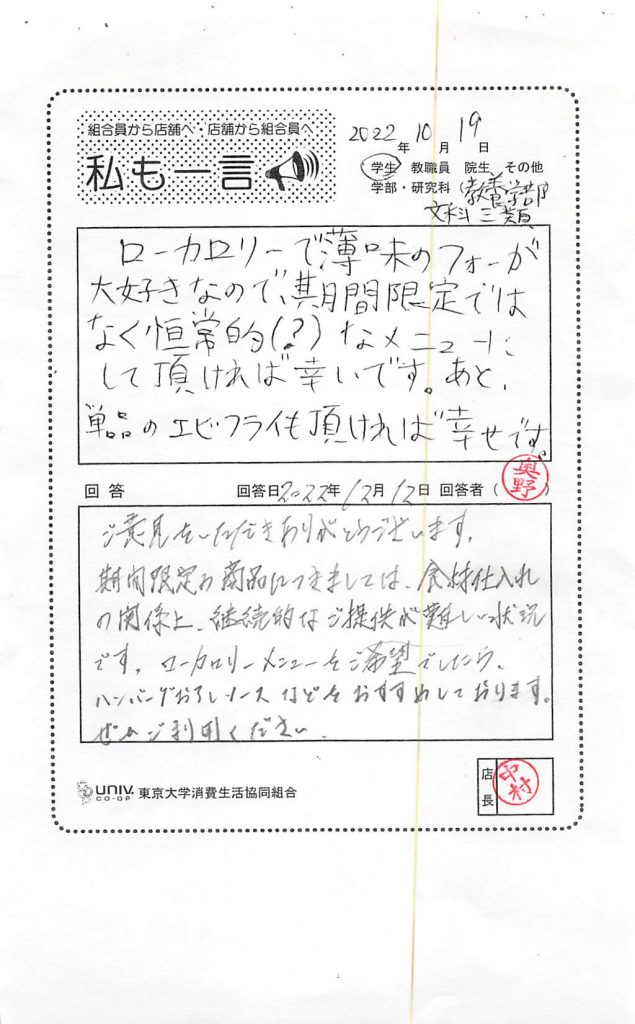 組合員から店舗へ・店舗から組合員へ
私も一言
2022年10月19日
学生 教職員 院生 その他
学部・研究科(教養学部
文科三類
ローカロリーで薄味のフォーが
大好きなので、期間限定では
なく恒常的(?)なメニューに
して頂ければ幸いです。あと、
単品のエビフライも頂ければ幸せです。
回答 回答日2022年12月12日 回答者(奥野)
ご意見をいただきありがとうございます。
期間限定の商品につきましては、食材仕入れ
の関係上、継続的なご提供が難しい状況
です。ローカロリーメニューをご希望でしたら、
ハンバーグおろしソースなどをおすすめしております。
ぜひご利用ください。
UNIV. CO-OP 東京大学消費生活協同組合
店長 中村